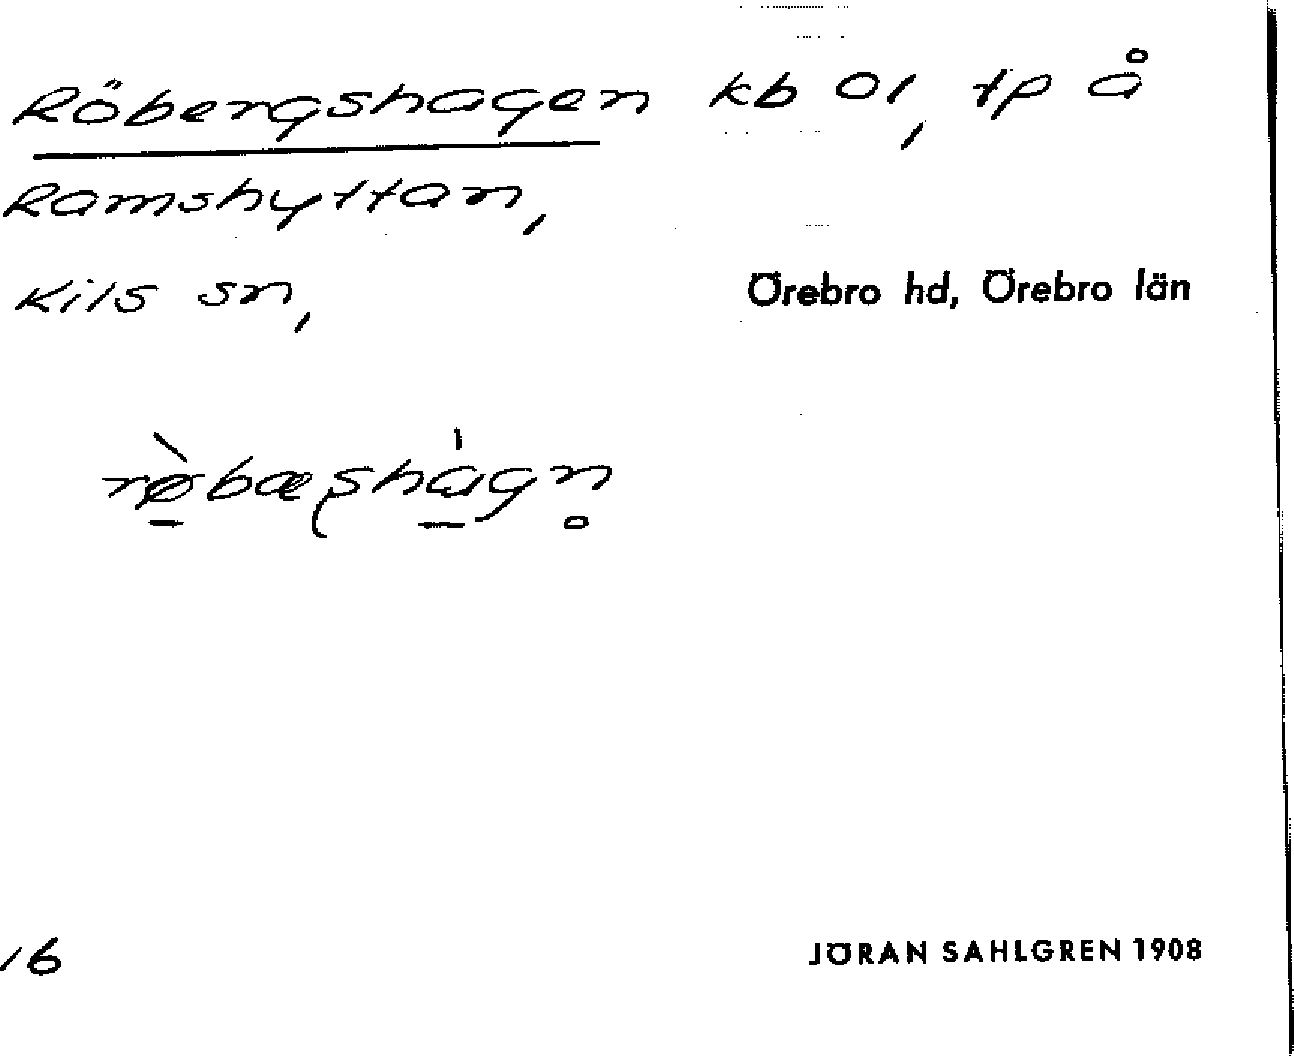 Röbergshagen kb 01, tp å
Ramshyttan,
Kils sn, Örebro hd, Örebro län
rø̠̀bæʂha̠̍gn̥
16 JÖRAN SAHLGREN 1908